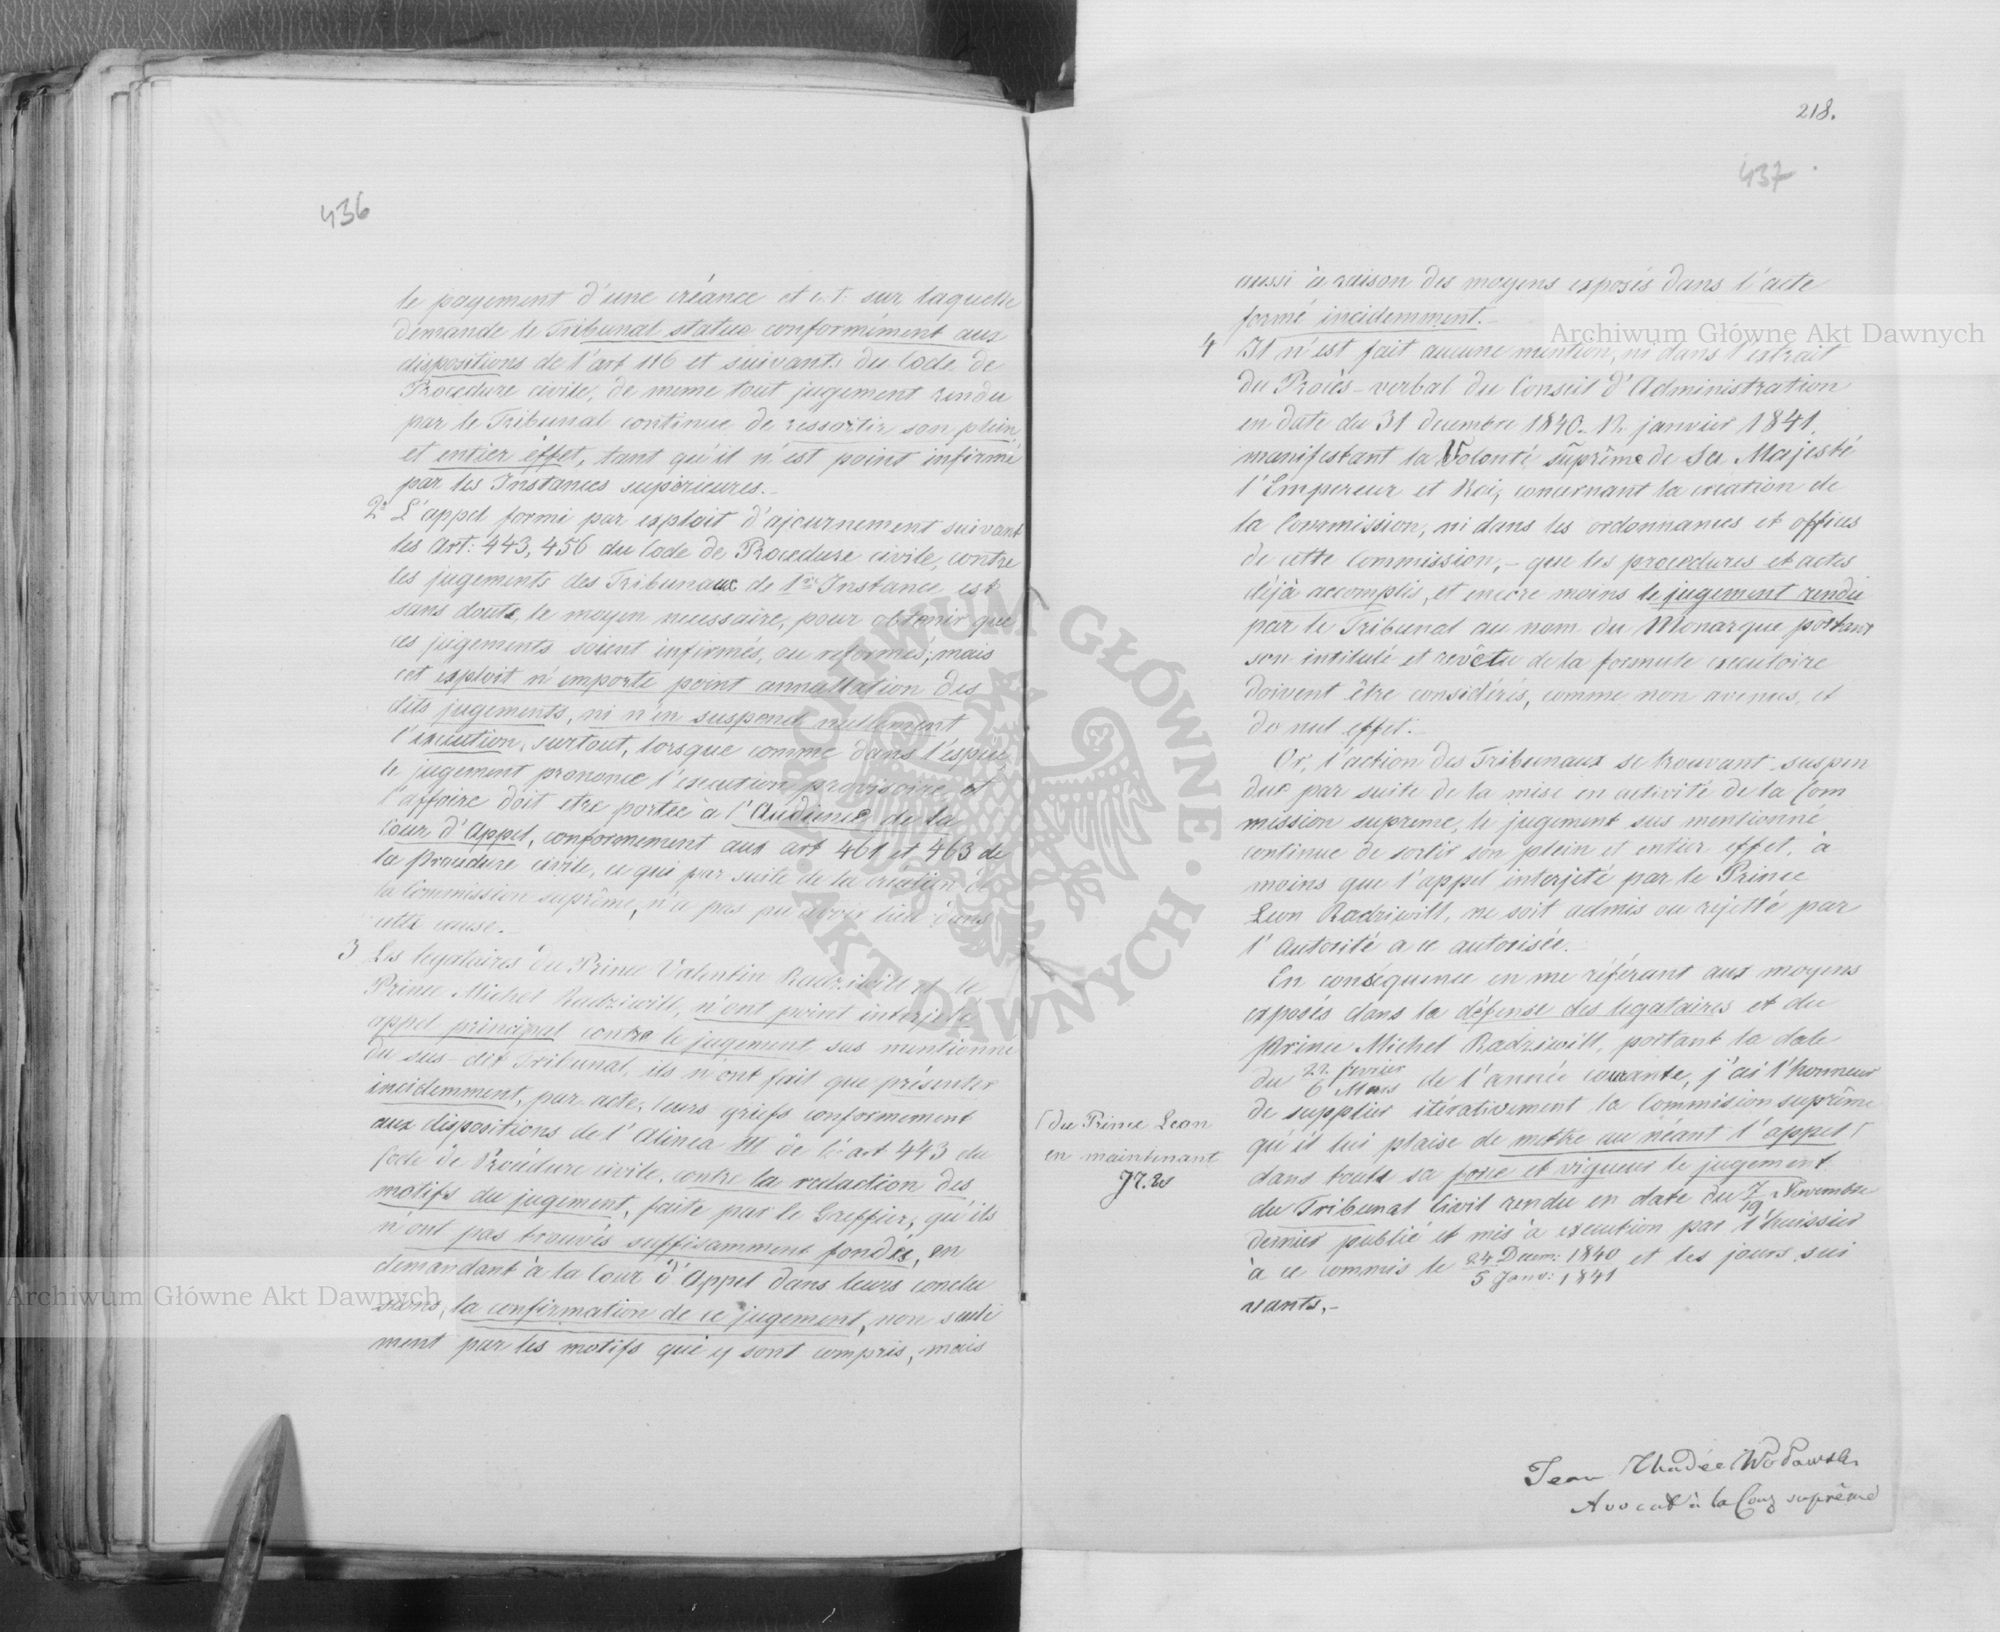 436
le payement d'une créance et c. t. sur laquelle
demande le Tribunal statue conformément aux
dispositions de l'art 116 et suivants du Code de
Procedure civile, de meme tout jugement rendu
par le Tribunal continue de ressortir son plein
et entier effet, tant qu'il n'est point infirmé
par les Instances superieures.-
2° L'appel formé par exploit d'ajournement suivant
les Art: 443, 456 du Code de Procedure civile, contre
les jugements des Tribunaux de 1re Instance, est
sans doute, le moyen necessaire, pour obtenir que
ces jugements soient infirmés, ou reformés; mais
cet exploit n'emporte point annullation des
dits jugements, ni n'en suspend nullement
l'execution, surtout, lorsque comme dans l'espece
le jugement prononce l'execution provisoire, et
l'affaire doit etre portée à l'Audience de la
Cour d'Appel, conformement aux art 461 et 463 de
la procedure civile, ce qui par suite de la creation de
la Commission suprême, n'a pas pu avoir lieu dans
cette cause.-
3 Les legataires du Prince Valentin Radziwill et le
Prince Michel Radziwill, n'ont point interjeté
appel principal contre le jugement sus mentionne
du sus-dit Tribunal, ils n'ont fait que présenter
incidemment, par acte, leurs griefs conformement
aux dispositions de l'Alinea III de l'art 443 du
Code de Procédure civile, contre la redaction des
motifs du jugement, faite par le Greffier, qu'ils
n'ont pas trouvés suffisamment fondés, en
demandant à la Cour d'Appel dans leurs conclu
sions, la confirmation de ce jugement, non seule
ment par les motifs qui y sont compris, mais
218.
437
aussi à raison des moyens exposés dans l'acte
formé incidemment.-
4 Il n'est fait aucune mention, ni dans l'extrait
du Procès-verbal du Conseil d'Administration
en date du 31 decembre 1840-12 janvier 1841,
manifestant la Volonté suprême de Sa Majesté
l'Empereur et Roi, concernant la creation de
la Commission, ni dans les ordonnances et offices
de cette Commission,- que les procedures et actes
déjà accomplis, et encore moins le jugement rendu
par le Tribunal au nom du Monarque portant
son intitulé et revêtu de la formule executoire
doivent être considérés, comme non avenus, et
de nul effet.
Or, l'action des Tribunaux se trouvant suspen
due par suite de la mise en activité de la Com
mission supreme, le jugement sus mentionné
continue de sortir son plein et entier effet, à
moins que l'appel interjeté par le Prince
Leon Radziwill, ne soit admis ou rejetté par
l'Autorité a ce autorisée.-
En conséquence en me référant aux moyens
exposés dans la défense des legataires et du
Prince Michel Radziwill, portant la date
du 22 fevrier / 6 Mars de l'année courante, j'ai l'honneur
de supplier itérativement la Commision suprême
qu'il lui plaise de mettre au néant l'appel Γ
Γ du Prince Leon
en maintenant
dans toute sa force et vigueur le jugement
du Tribunal Civil rendu en date du 7/19 Novembre
dernier publié et mis à execution par l'huissier
à ce commis le 24 Decem: 1840 / 5 Janv: 1841 et les jours sui
vants.-
Jean Thadée Wodowski
Avocat à la Cour suprême
Archiwum Główne Akt Dawnych
Archiwum Główne Akt Dawnych
ARCHIWUM GŁÓWNE · AKT DAWNYCH ·